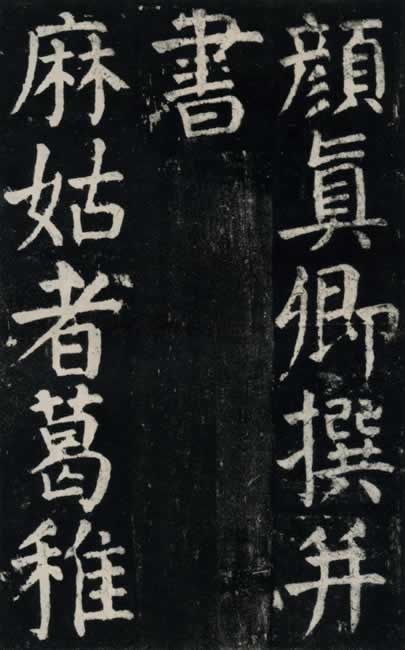 顏真卿撰并
書
麻姑者葛稚